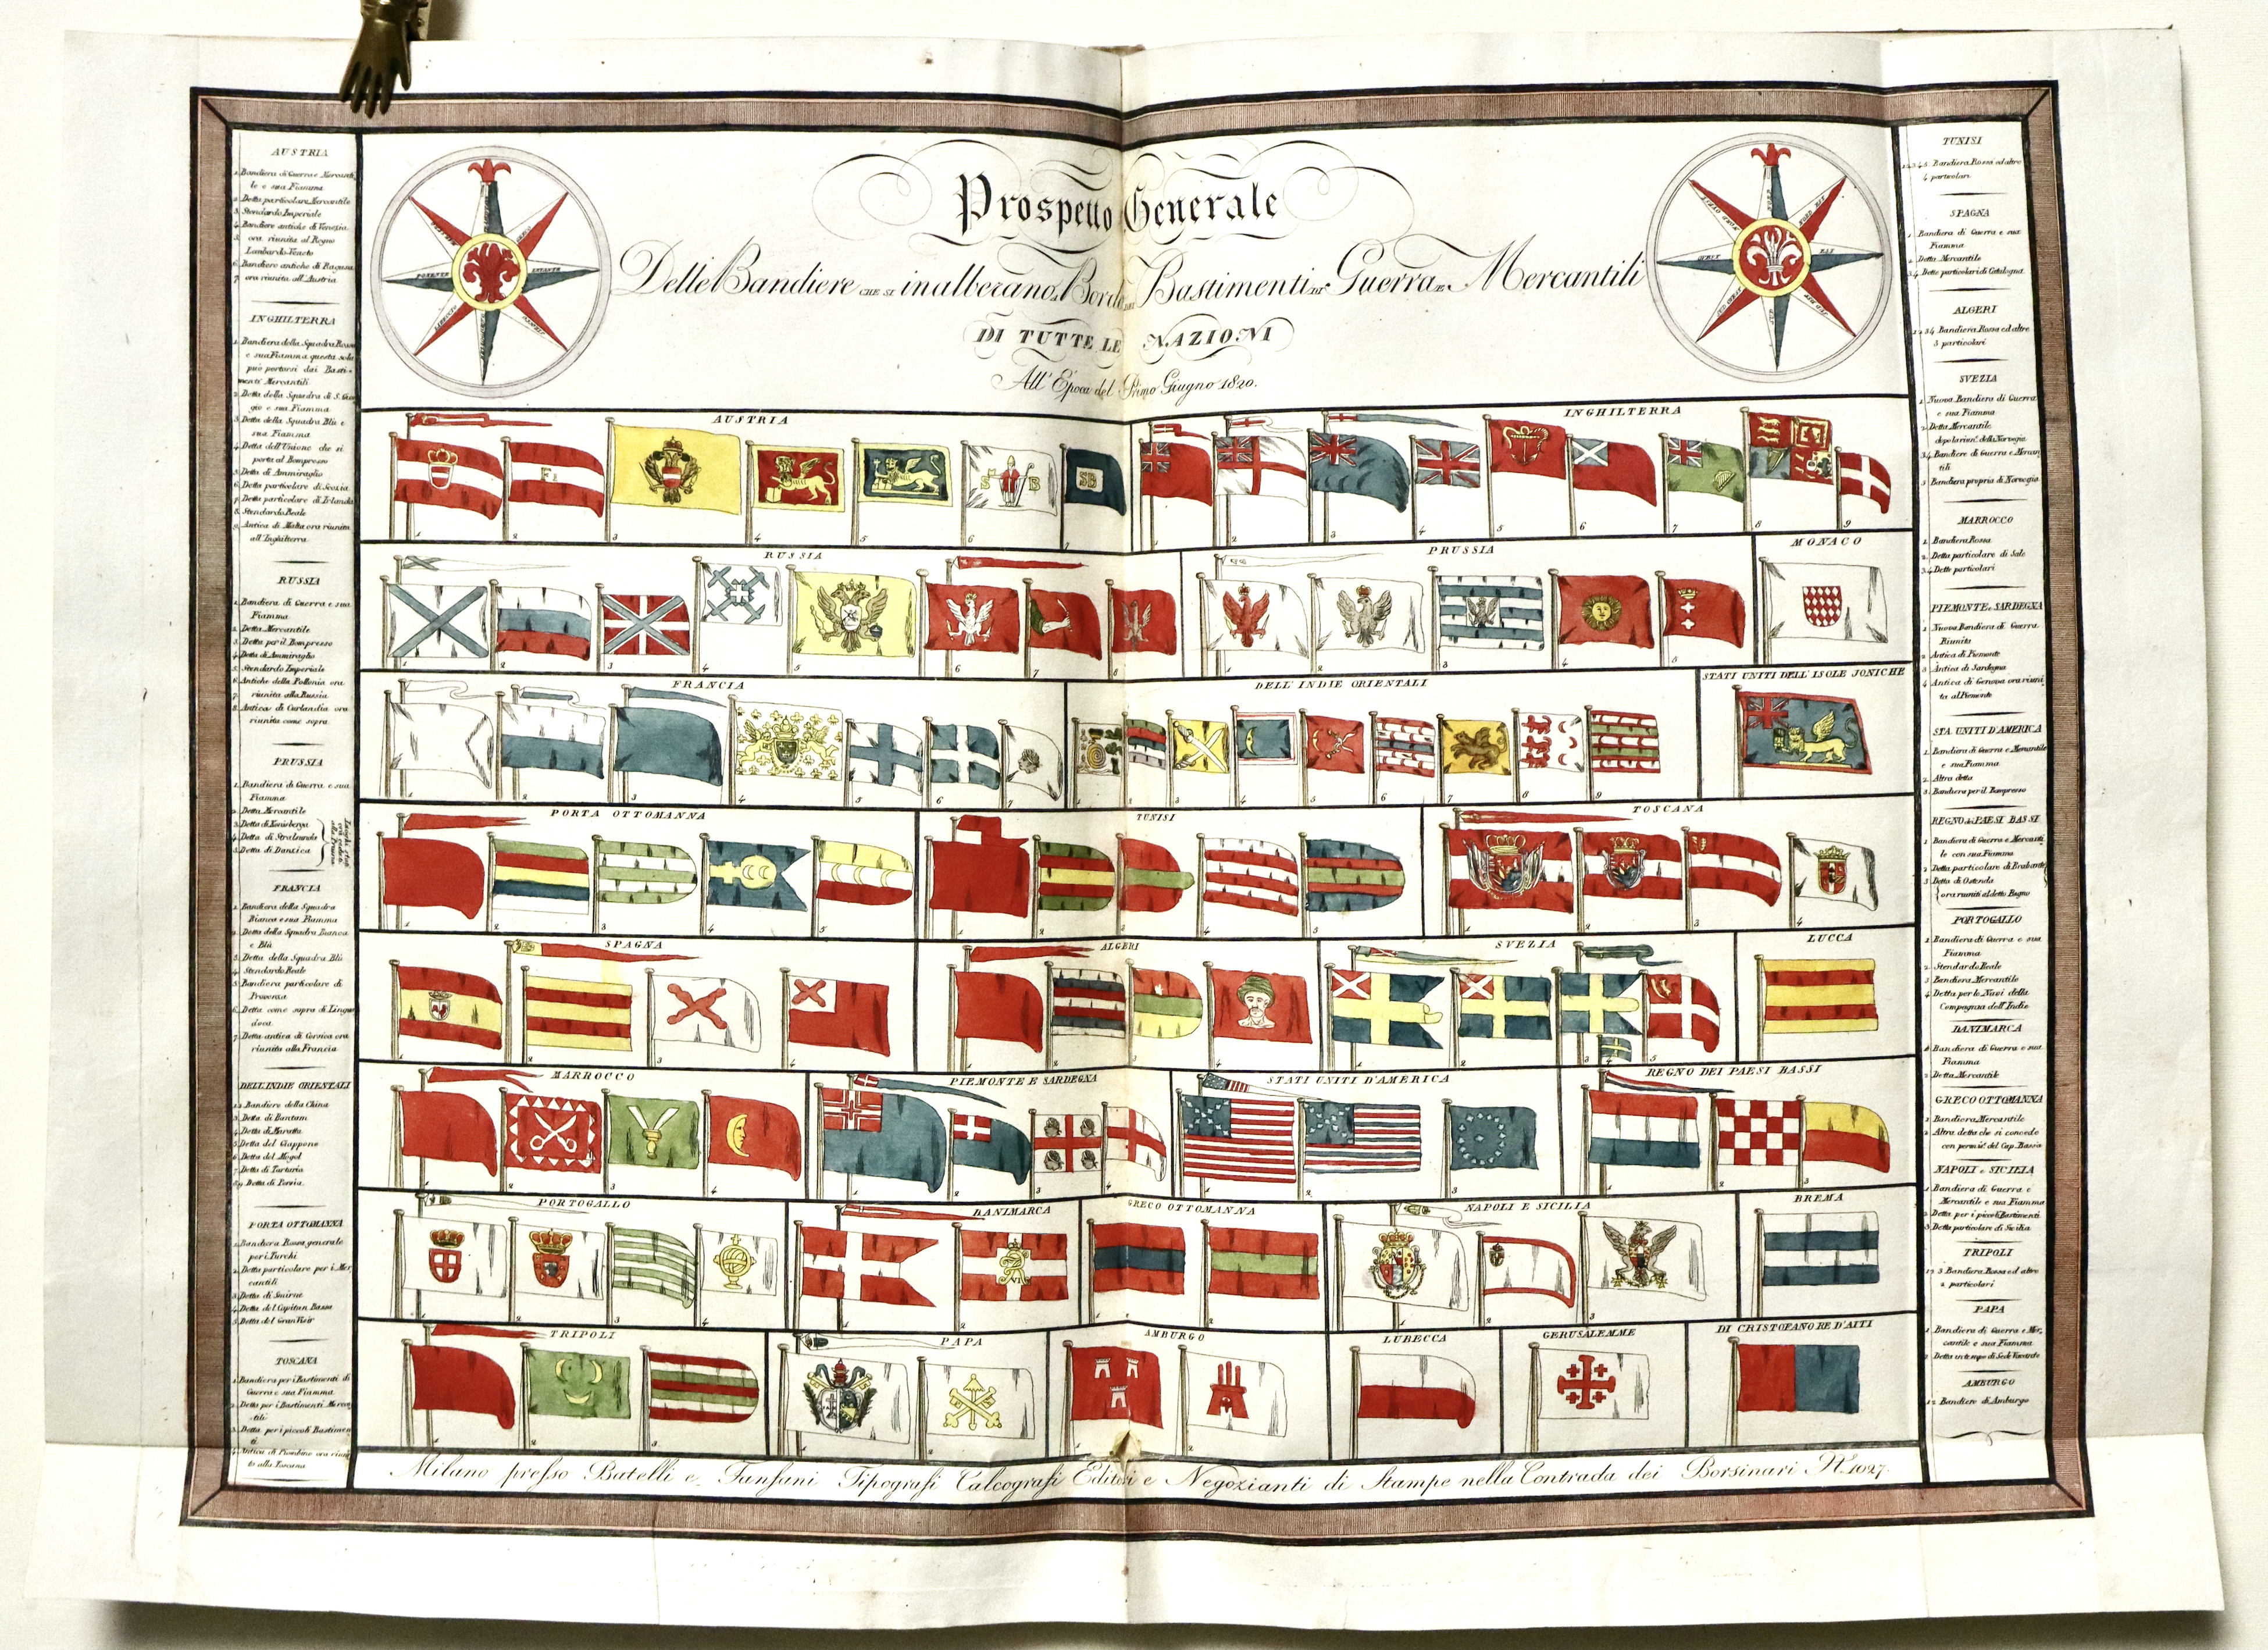 Prospetto Generale
Delle Bandiere che si inalberano a Bordo dei Bastimenti di Guerra e Mercantili
DI TUTTE LE NAZIONI
All' Epoca del Primo Giugno 1820.
AUSTRIA
1. Bandiera di Guerra e Mercanti
le e sua Fiamma
2. Detta particolare Mercantile
3. Stendardo Imperiale
4. Bandiere antiche di Venezia
5. ora riunita al Regno
Lombardo-Veneto
6. Bandiere antiche di Ragusa
7. ora riunita all'Austria
INGHILTERRA
1. Bandiera della Squadra Rossa
e sua Fiamma questa sola
può portarsi dai Basti=
menti Mercantili
2. Detta della Squadra di S. Gior
gio e sua Fiamma
3. Detta della Squadra Blù e
sua Fiamma
4. Detta dell'Unione che si
porta al Bompresso
5. Detta di Ammiraglio
6. Detta particolare di Scozia
7. Detta particolare di Irlanda
8. Stendardo Reale
9. Antica di Malta ora riunita
all'Inghilterra
RUSSIA
1. Bandiera di Guerra e sua
Fiamma
2. Detta Mercantile
3. Detta per il Bompresso
4. Detta di Ammiraglio
5. Stendardo Imperiale
6. Antiche della Pollonia ora
7. riunita alla Russia
8. Antica di Curlandia ora
riunita come sopra
PRUSSIA
1. Bandiera di Guerra e sua
Fiamma
2. Detta Mercantile
3. Detta di Konisberga
4. Detta di Stralsunda
5. Detta di Danzica
FRANCIA
1. Bandiera della Squadra
Bianca e sua Fiamma
2. Detta della Squadra Bianca
e Blù
3. Detta della Squadra Blù
4. Stendardo Reale
5. Bandiera particolare di
Provenza
6. Detta come sopra di Lingua
doca
7. Detta antica di Corsica ora
riunita alla Francia
DELL'INDIE ORIENTALI
1.2. Bandiere della China
3. Detta di Bantam
4. Detta di Maratta
5. Detta del Giappone
6. Detta del Mogol
7. Detta di Tartaria
8.9. Detta di Persia
PORTA OTTOMANNA
1. Bandiera Rossa generale
per i Turchi
2. Detta particolare per i Mer
cantili
3. Detta di Smirne
4. Detta del Capitan Bassa
5. Detta del Gran Visir
TOSCANA
1. Bandiera per i Bastimenti di
Guerra e sua Fiamma
2. Detta per i Bastimenti Mercan
tili
3. Detta per i piccoli Bastimen
ti
4. Antica di Piombino ora riuni
ta alla Toscana
AUSTRIA
INGHILTERRA
RUSSIA
PRUSSIA
MONACO
FRANCIA
DELL' INDIE ORIENTALI
STATI UNITI DELL' ISOLE JONICHE
PORTA OTTOMANNA
TUNISI
TOSCANA
SPAGNA
ALGERI
SVEZIA
LUCCA
MARROCCO
PIEMONTE E SARDEGNA
STATI UNITI D'AMERICA
REGNO DEI PAESI BASSI
PORTOGALLO
DANIMARCA
GRECO OTTOMANNA
NAPOLI E SICILIA
BREMA
TRIPOLI
PAPA
AMBURGO
LUBECCA
GERUSALEMME
DI CRISTOFANO RE D'AITI
TUNISI
1.2.3.4.5. Bandiera Rossa ed altre
4 particolari
SPAGNA
1. Bandiera di Guerra e sua
Fiamma
2. Detta Mercantile
3.4. Dette particolari di Catalogna
ALGERI
1.2.3.4. Bandiera Rossa ed altre
3 particolari
SVEZIA
1. Nuova Bandiera di Guerra
e sua Fiamma
2. Detta Mercantile
dopo la riun.e della Norvegia
3.4. Bandiere di Guerra e Mercan
tili
5. Bandiera propria di Norvegia
MARROCCO
1. Bandiera Rossa
2. Detta particolare di Salè
3.4. Dette particolari
PIEMONTE e SARDEGNA
1. Nuova Bandiera di Guerra
Riunita
2. Antica di Piemonte
3. Antica di Sardegna
4. Antica di Genova ora riuni
ta al Piemonte
STA. UNITI D'AMERICA
1. Bandiera di Guerra e Mercantile
e sua Fiamma
2. Altra detta
3. Bandiera per il Bompresso
REGNO dei PAESI BASSI
1. Bandiera di Guerra e Mercanti
le con sua Fiamma
2. Detta particolare di Brabante
3. Detta di Ostenda
ora riuniti al detto Regno
PORTOGALLO
1. Bandiera di Guerra e sua
Fiamma
2. Stendardo Reale
3. Bandiera Mercantile
4. Detta per le Navi della
Compagnia dell'Indie
DANIMARCA
1. Bandiera di Guerra e sua
Fiamma
2. Detta Mercantile
GRECO OTTOMANNA
1. Bandiera Mercantile
2. Altra detta che si concede
con permis. del Cap. Bassà
NAPOLI e SICILIA
1. Bandiera di Guerra e
Mercantile e sua Fiamma
2. Detta per i piccoli Bastimenti
3. Detta particolare di Sicilia
TRIPOLI
1.2.3. Bandiera Rossa ed altre
2 particolari
PAPA
1. Bandiera di Guerra e Mer,
cantile e sua Fiamma
2. Detta in tempo di Sede Vacante
AMBURGO
1.2. Bandiere di Amburgo
Milano presso Batelli e Fanfani Tipografi Calcografi Editori e Negozianti di Stampe nella Contrada dei Borsinari N. 1027.